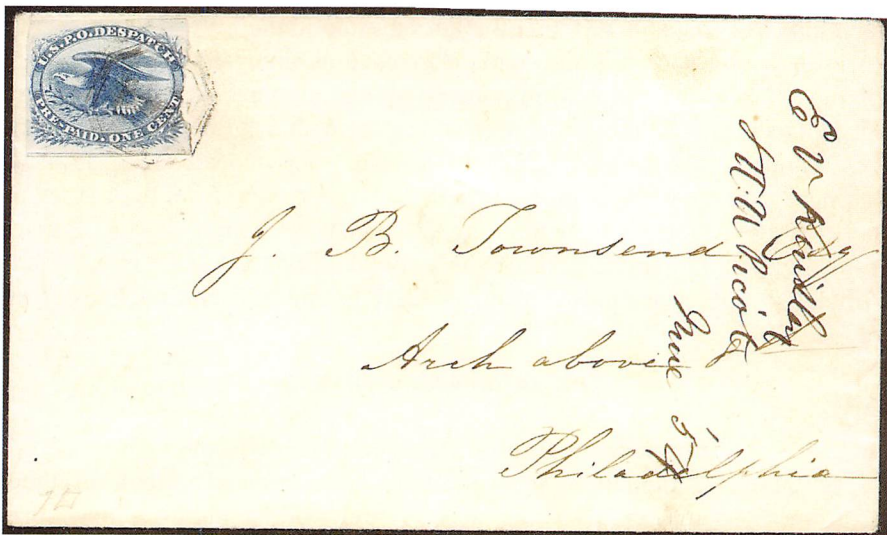 U.S.P.O.DESPATCH
PRE-PAID.ONE CENT
J. B. Townsend Esq
Arch above 8th
Philadelphia
E V
June 5